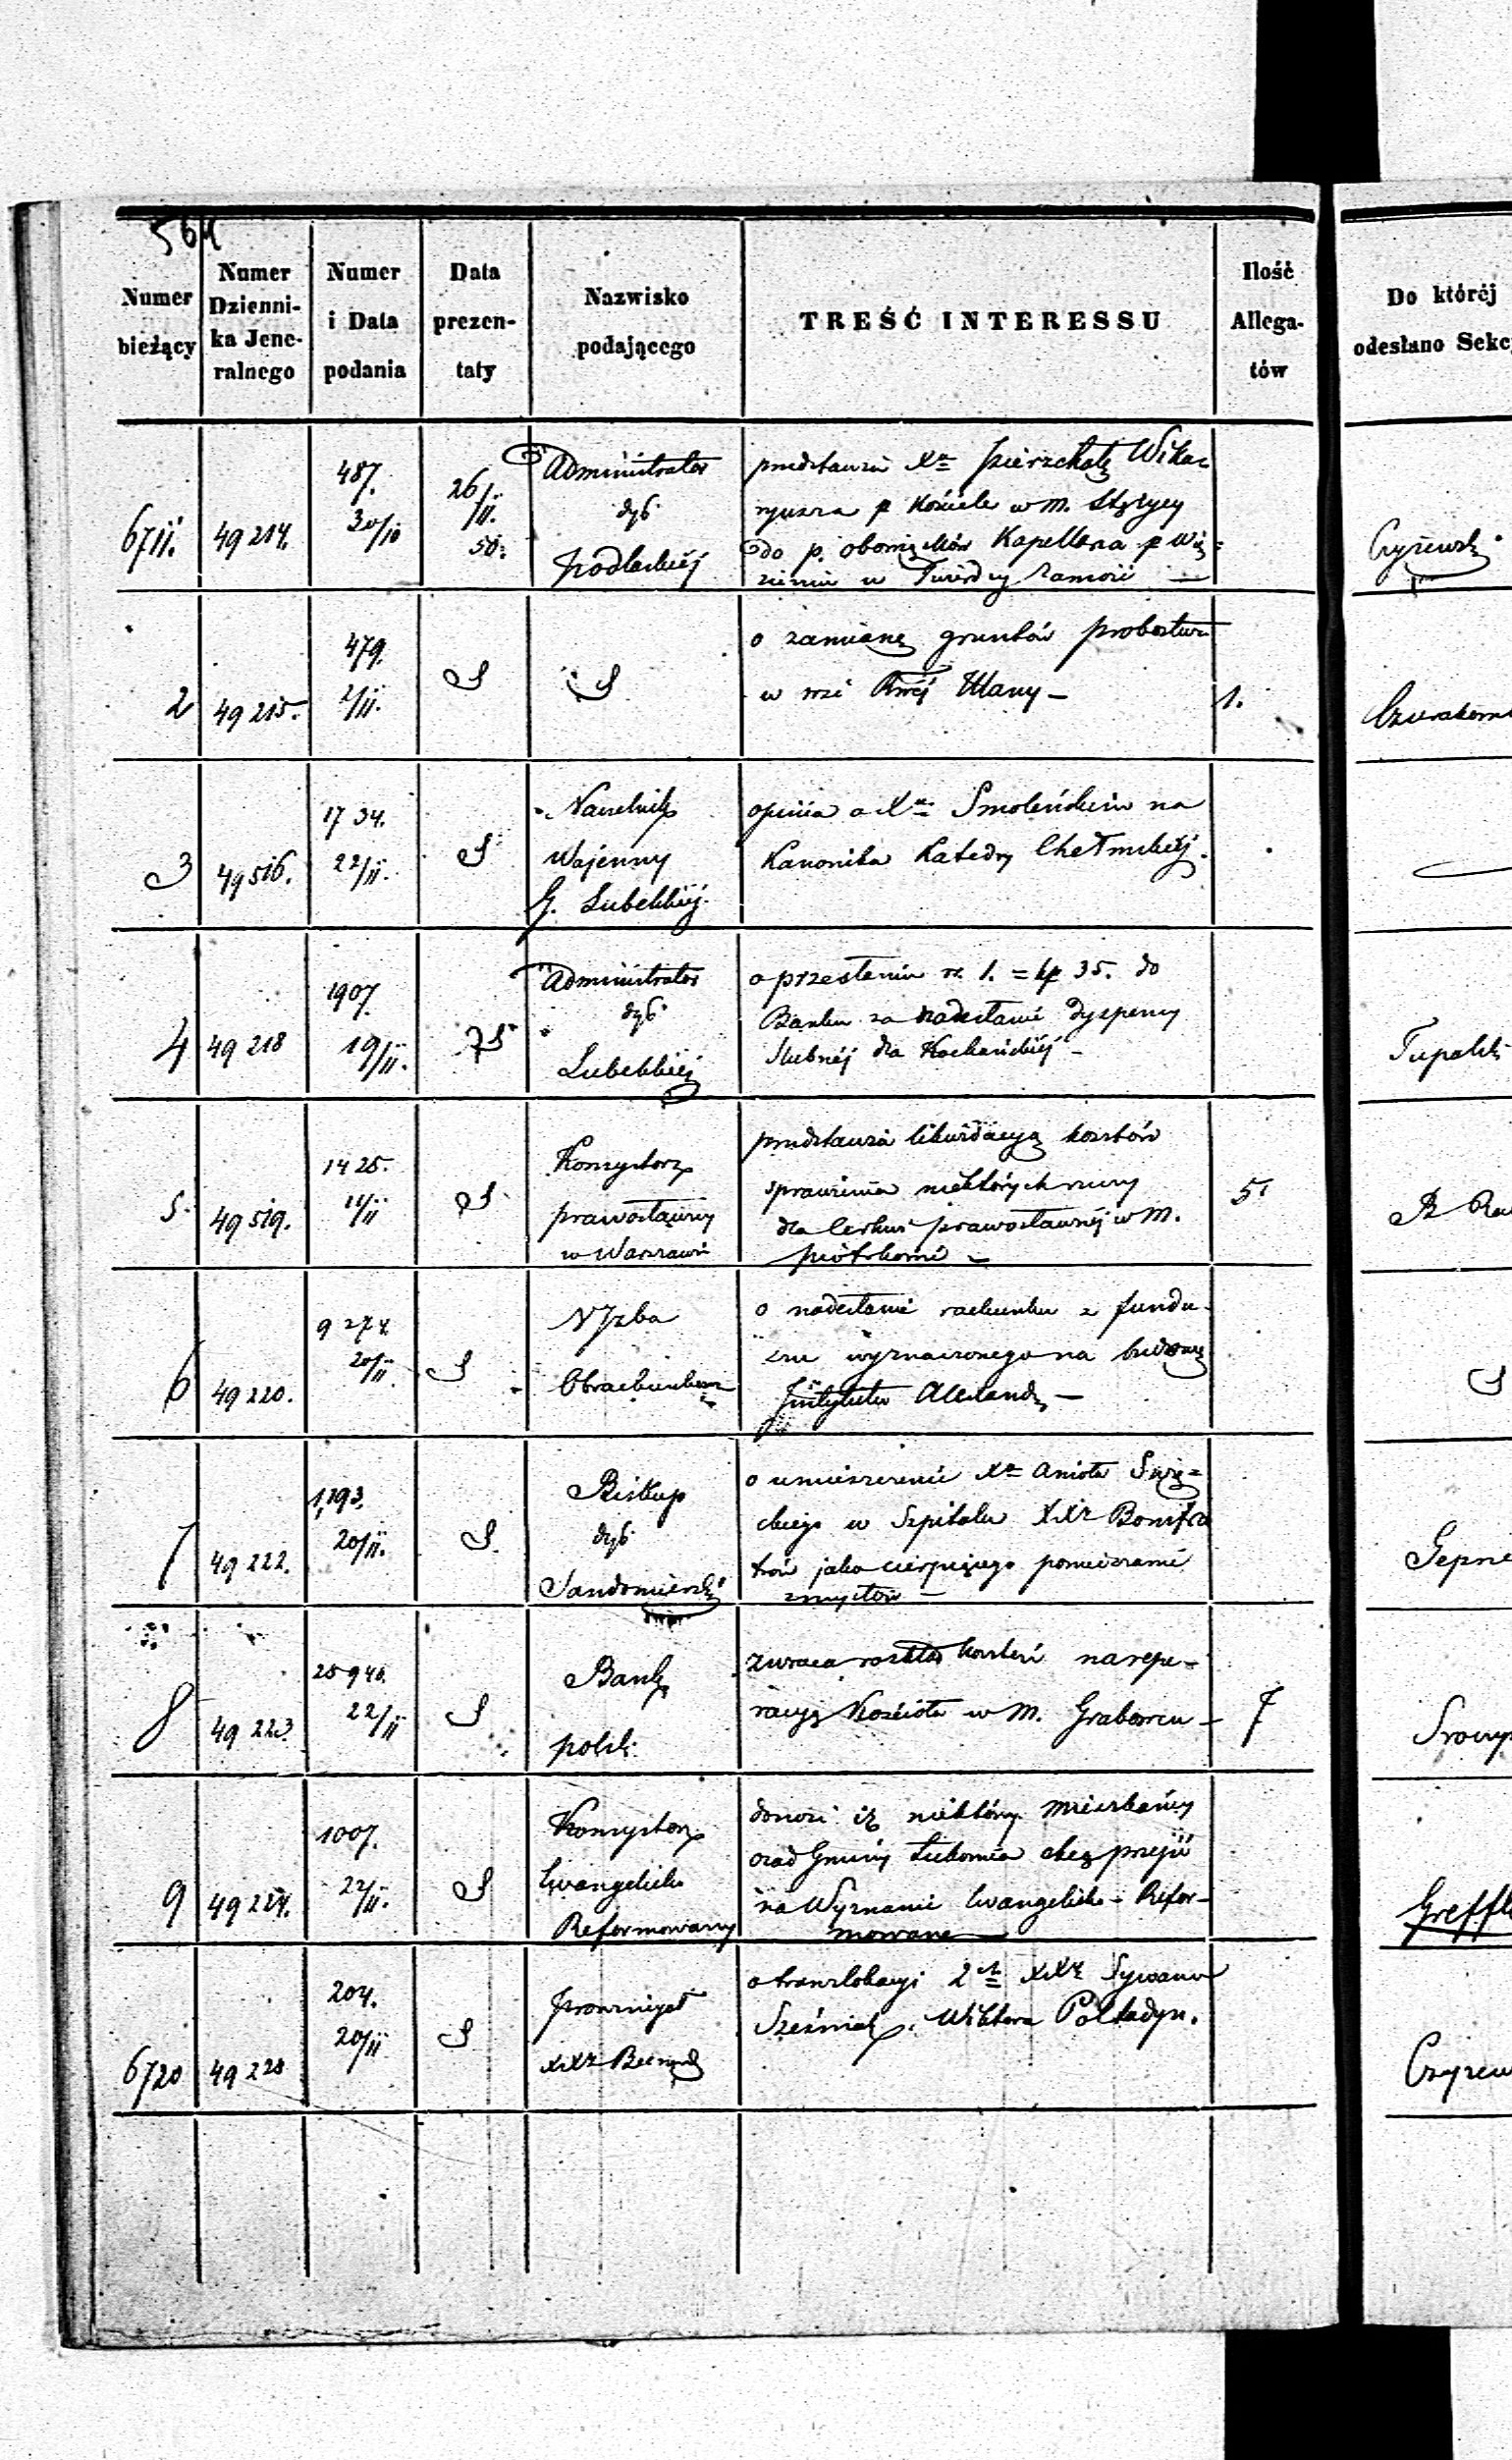 564
Numer bieżący | Numer Dzienni-ka Jene-ralnego | Numer i Data podania | Data prezen-taty | Nazwisko podającego | TREŚĆ INTERESSU | Ilość Allega-tów | Do której odesłano Sekc
6711. | 49214. | 487. 30/10 | 26/11. 50. | Administrator dyć Podlaskiéj | przedstawia Xa Pierzchałę Wika-
ryusza p Kościele w M. Stężycy
do p. obowiązków Kapellana p Wię-
zieniu w Twierdzy Zamość | Czyżewski
2 | 49215. | 479. 2/11. | S | S | o zamianę gruntów probostwa
w wsi Ulany | 1.
3 | 49516. | 1734. 22/11. | S | Naczelnik Wojenny G. Lubelskiéj | opinia o Xu Smoleńskim na
Kanonika Katedry Chełmskiéj.
4 | 49218 | 1907. 19/11. | S | Administrator dyć Lubelskiéj | o przesłaniu rs. 1. = kp 35. do
Banku za nadesłanie dyspensy
ślubnéj dla Kochańskiéj | Tupalski
5. | 49519. | 1425. 11/11 | S | Konsystorz prawosławny w Warszawie | przedstawia likwidacyą kosztów
sprawienia niektórych rzeczy
dla Cerkwi prawosławnéj w M.
Piotrkowie | 5.
6 | 49220. | 9274. 20/11. | S | N Izba Obrachunkowa | o nadesłanie rachunku z fundu-
szu wyznaczonego na budowę
Instytutu Alexandr | S
7 | 49222. | 1,193. 20/11. | S | Biskup dyć Sandomierski | o umieszczenie Xa Anioła
w Szpitalu XXr Bonifra
trów jako cierpiącego pomieszanie
zmysłów
8 | 49223. | 25940. 22/11 | S | Bank polski | zwraca rozkład kosztów na repe-
racyą Kościoła w M. Grabowcu | 7
9 | 49224. | 1007. 22/11. | S | Konsystorz Ewangelicko Reformowany | donosi iż niektórzy mieszkańcy
osad Gminy chcą przejść
na Wyznanie Ewangelicko-Refor-
mowane
6720 | 49228 | 204. 20/11 | S | Prowincyał XXr Bernard | o translokacyi 2ch XXr
Sześniak, Wiktora